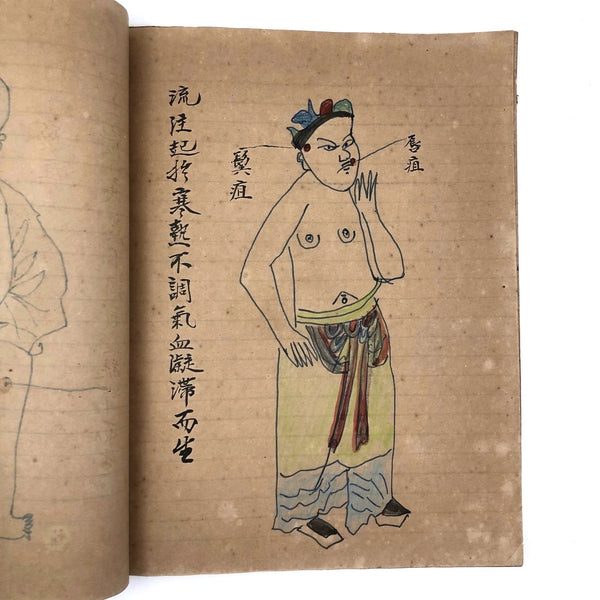 流注起於寒熱不調氣血凝滯而生
鬓疽
唇疽